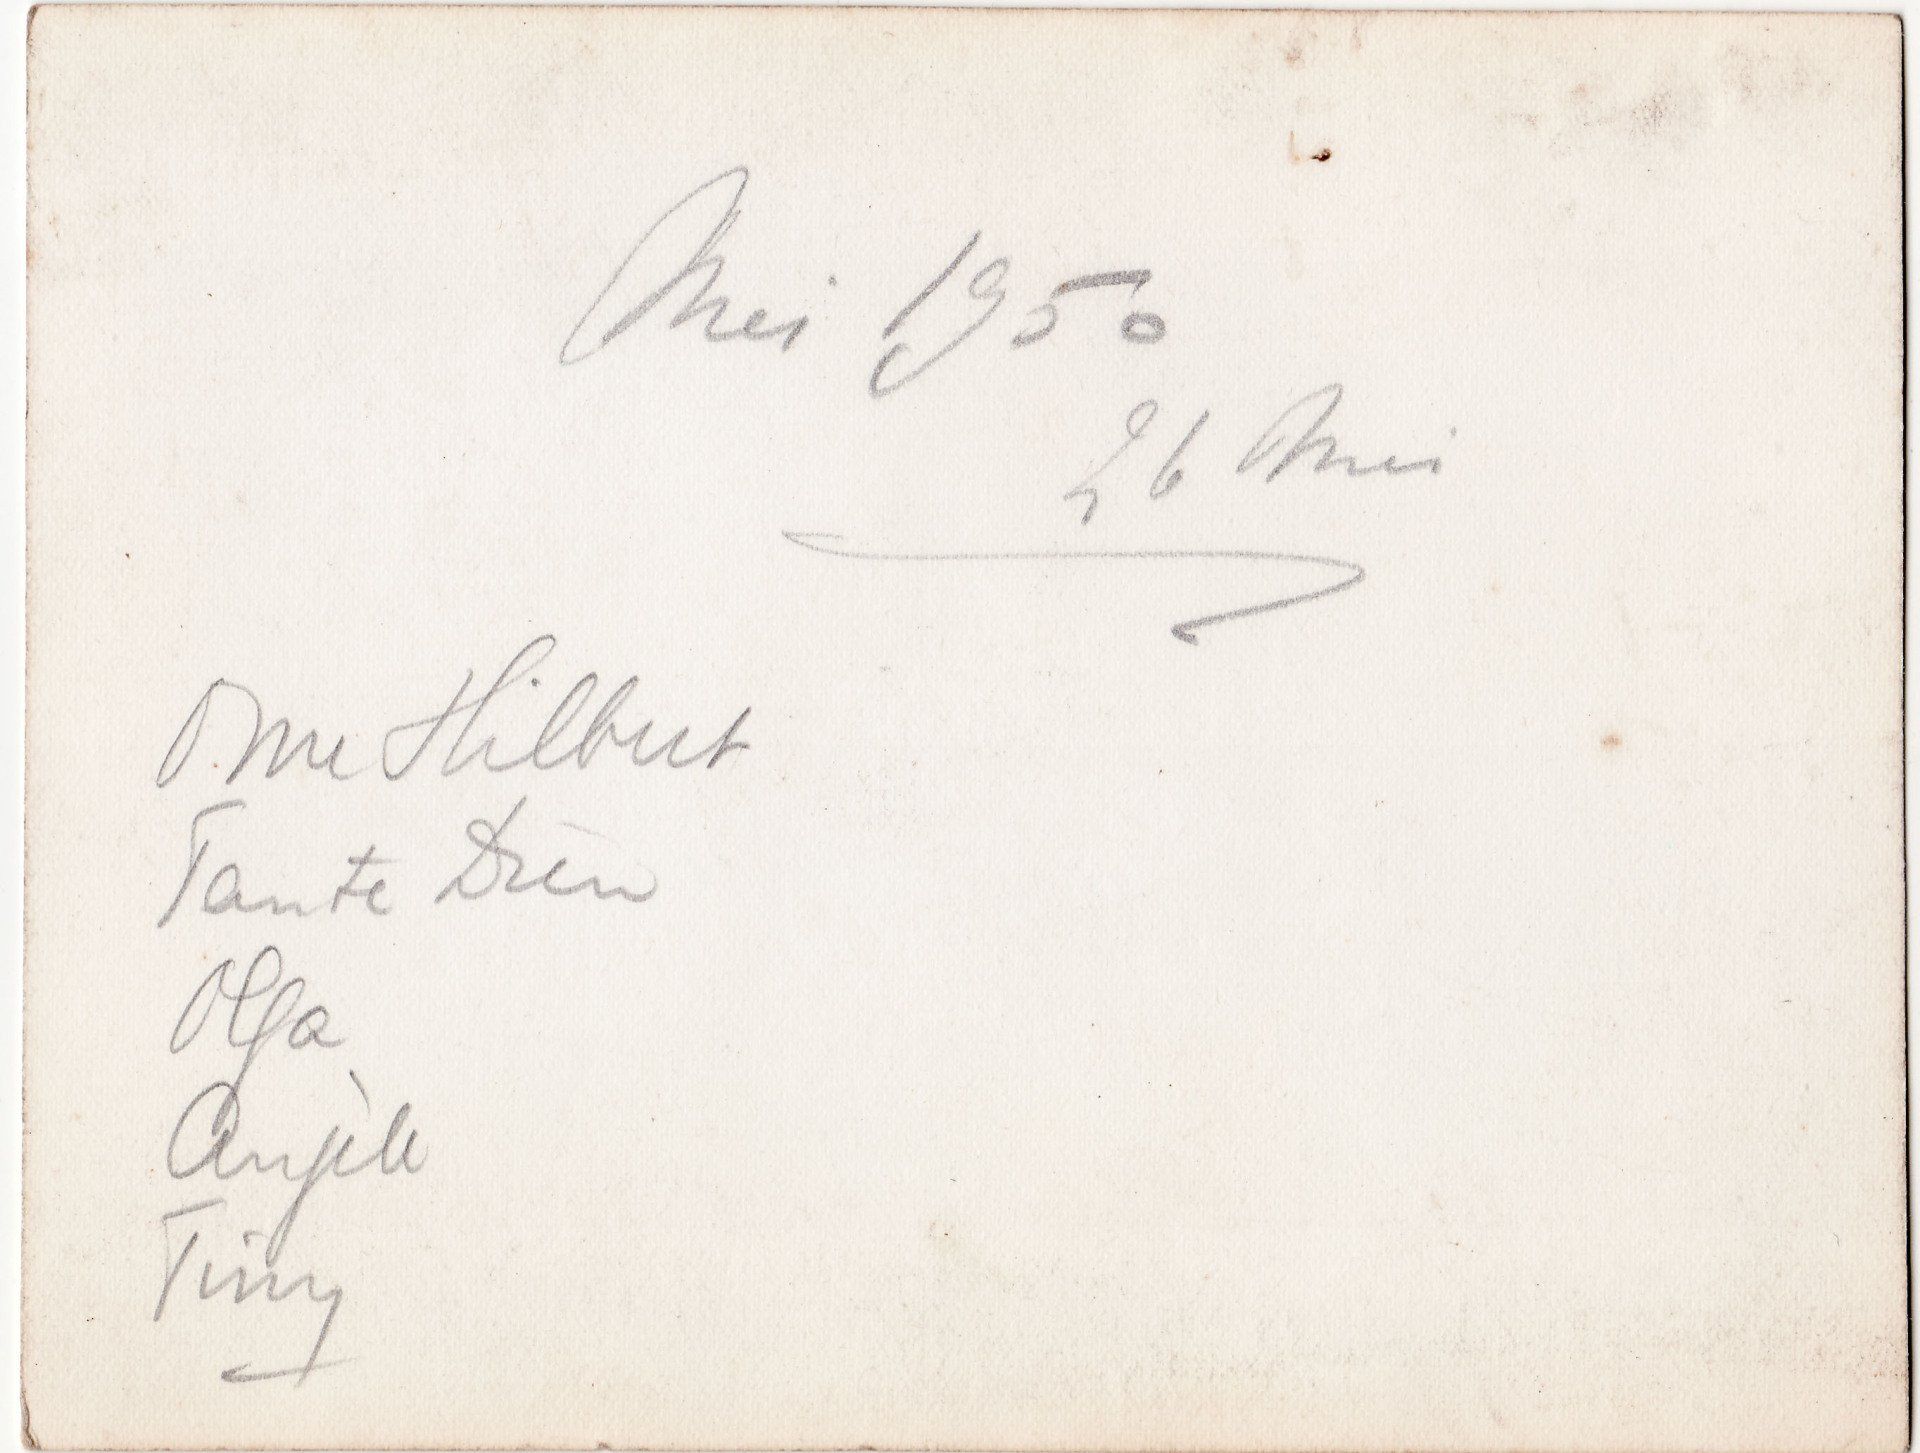 Mei 1950
26 Mei
Ome Hilbert
Tante Dien
Olga
Angèle
Tiny